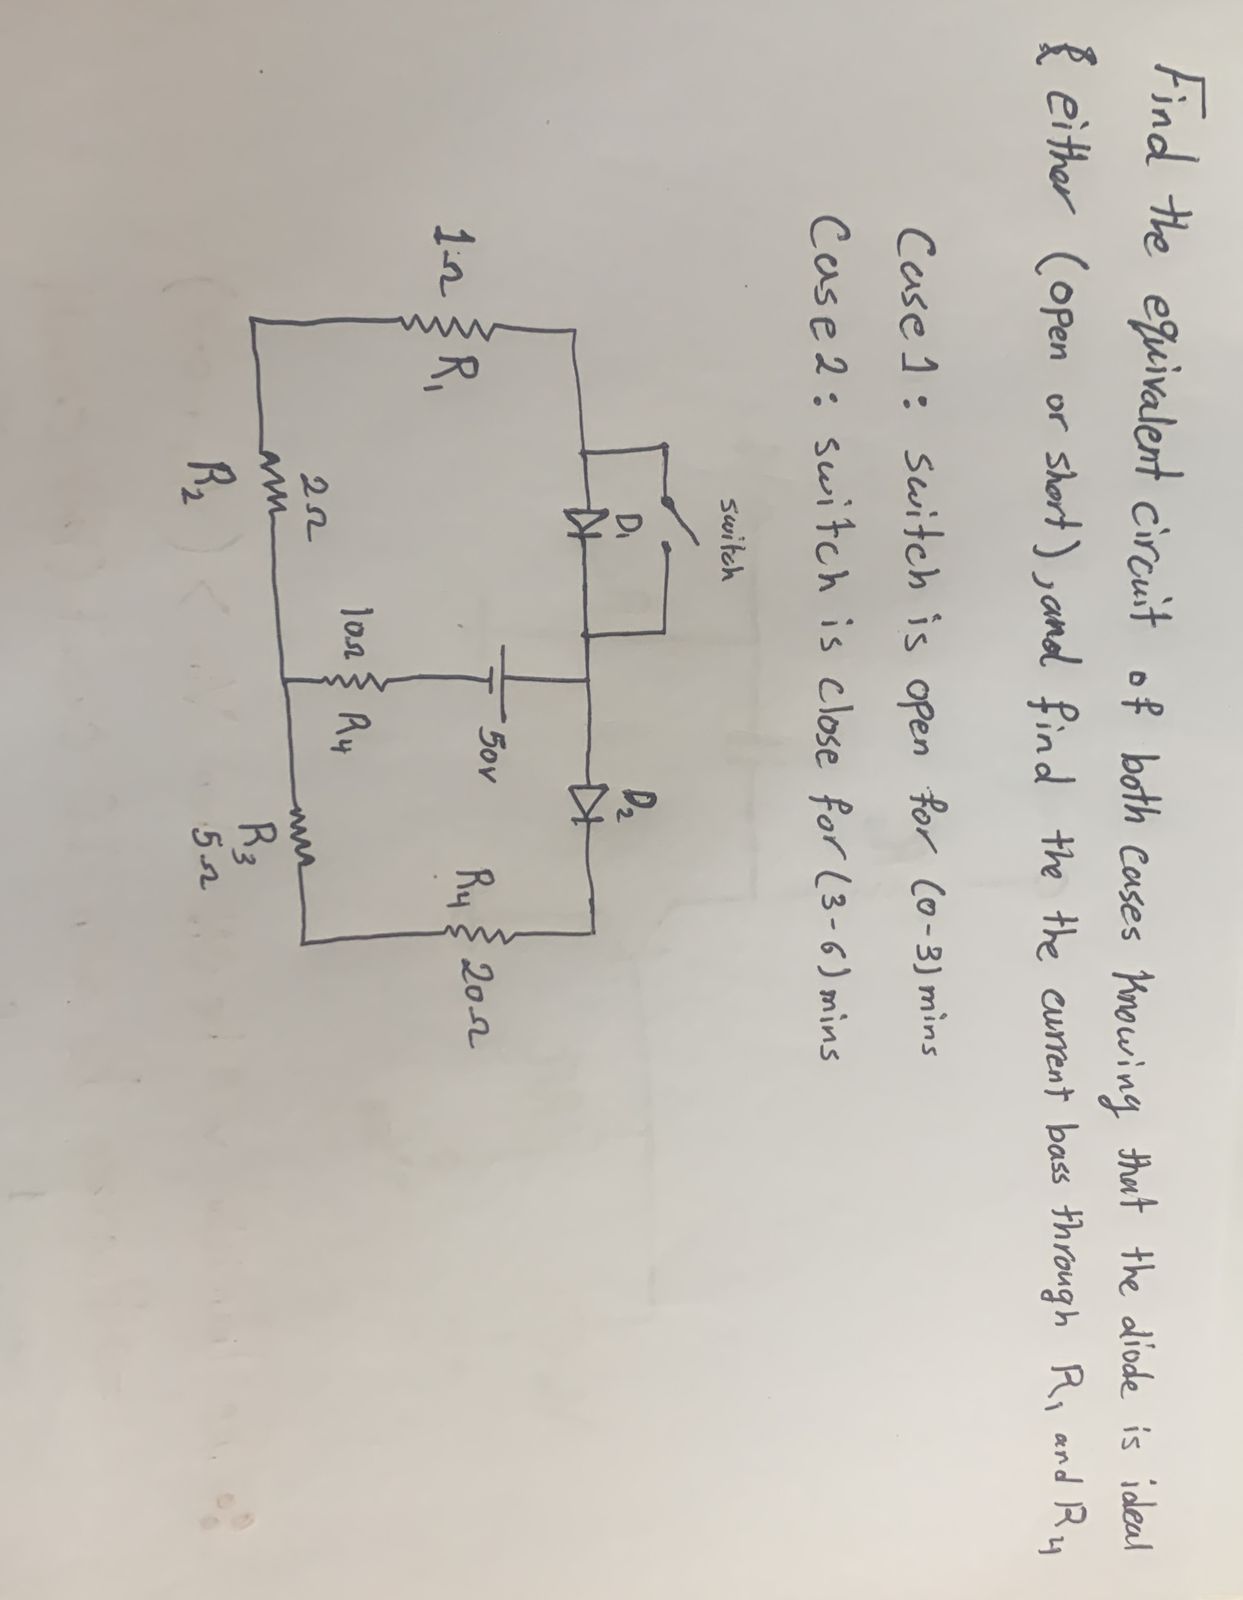 Find the equivalent circuit of both cases knowing that the diode is ideal
& either (open or short), and find the the current bass through R1 and R4
Case 1 : switch is open for (0-3) mins
Case 2 : switch is close for (3-6) mins
switch
D1
D2
1Ω
R1
50v
R4
20Ω
10Ω
R4
2Ω
R2
R3
5Ω